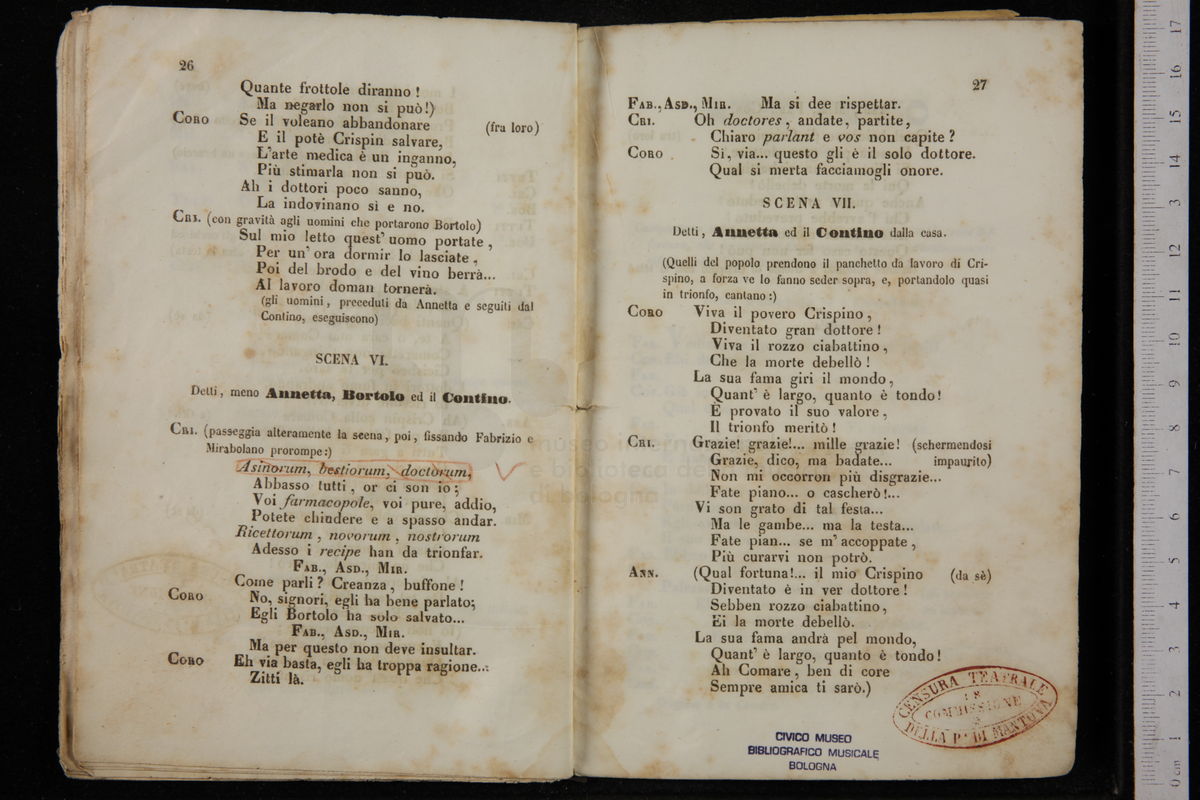 26
Quante frottole diranno !
Ma negarlo non si può!)
CORO Se il voleano abbandonare (fra loro)
E il potè Crispin salvare,
L'arte medica è un inganno,
Più stimarla non si può.
Ah i dottori poco sanno,
La indovinano sì e no.
CRI. (con gravità agli uomini che portarono Bortolo)
Sul mio letto quest' uomo portate ,
Per un' ora dormir lo lasciate ,
Poi del brodo e del vino berrà...
Al lavoro doman tornerà.
(gli uomini, preceduti da Annetta e seguiti dal
Contino, eseguiscono)
SCENA VI.
Detti, meno Annetta, Bortolo ed il Contino.
CRI. (passeggia alteramente la scena, poi, fissando Fabrizio e
Mirabolano prorompe:)
Asinorum, bestiorum, doctorum,
Abbasso tutti, or ci son io;
Voi farmacopole, voi pure, addio,
Potete chiudere e a spasso andar.
Ricettorum , novorum , nostrorum
Adesso i recipe han da trionfar.
FAB., ASD., MIR.
Come parli ? Creanza , buffone !
CORO No, signori, egli ha bene parlato;
Egli Bortolo ha solo salvato...
FAB., ASD., MIR.
Ma per questo non deve insultar.
CORO Eh via basta, egli ha troppa ragione...
Zitti là.
27
FAB., ASD., MIR. Ma si dee rispettar.
CRI. Oh doctores, andate, partite,
Chiaro parlant e vos non capite ?
CORO Sì, via... questo gli è il solo dottore.
Qual si merta facciamogli onore.
SCENA VII.
Detti, Annetta ed il Contino dalla casa.
(Quelli del popolo prendono il panchetto da lavoro di Cri-
spino, a forza ve lo fanno seder sopra, e, portandolo quasi
in trionfo, cantano :)
CORO Viva il povero Crispino,
Diventato gran dottore !
Viva il rozzo ciabattino,
Che la morte debellò !
La sua fama giri il mondo,
Quant' è largo, quanto è tondo!
È provato il suo valore,
Il trionfo meritò !
CRI. Grazie! grazie!... mille grazie! (schermendosi
Grazie, dico, ma badate... impaurito)
Non mi occorron più disgrazie...
Fate piano... o cascherò !...
Vi son grato di tal festa...
Ma le gambe... ma la testa...
Fate pian... se m' accoppate ,
Più curarvi non potrò.
ANN. (Qual fortuna!... il mio Crispino (da sè)
Diventato è in ver dottore !
Sebben rozzo ciabattino,
Ei la morte debellò.
La sua fama andrà pel mondo,
Quant' è largo, quanto è tondo!
Ah Comare, ben di core
Sempre amica ti sarò.)
CENSURA TEATRALE
COMMISSIONE
DELLA P. DI MANTOVA
CIVICO MUSEO
BIBLIOGRAFICO MUSICALE
BOLOGNA
museo interna
e biblioteca de
di bologna
0 cm 1 2 3 4 5 6 7 8 9 10 11 12 13 14 15 16 17